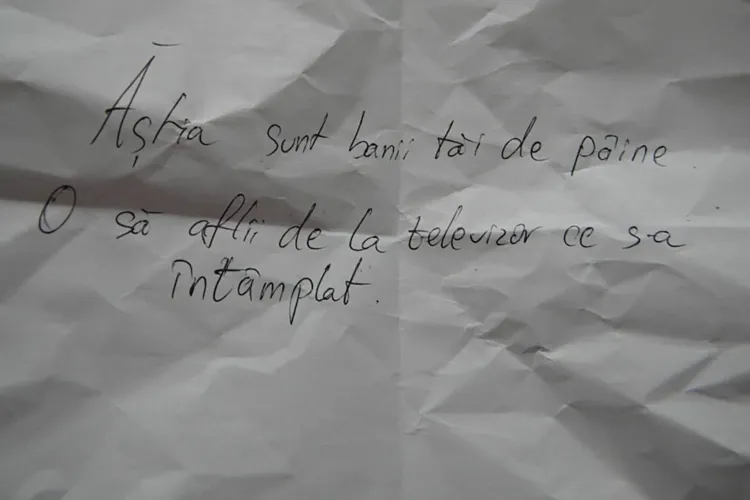 Ăștia sunt banii tăi de pâine.
O să aflii de la televizor ce s-a
întâmplat.